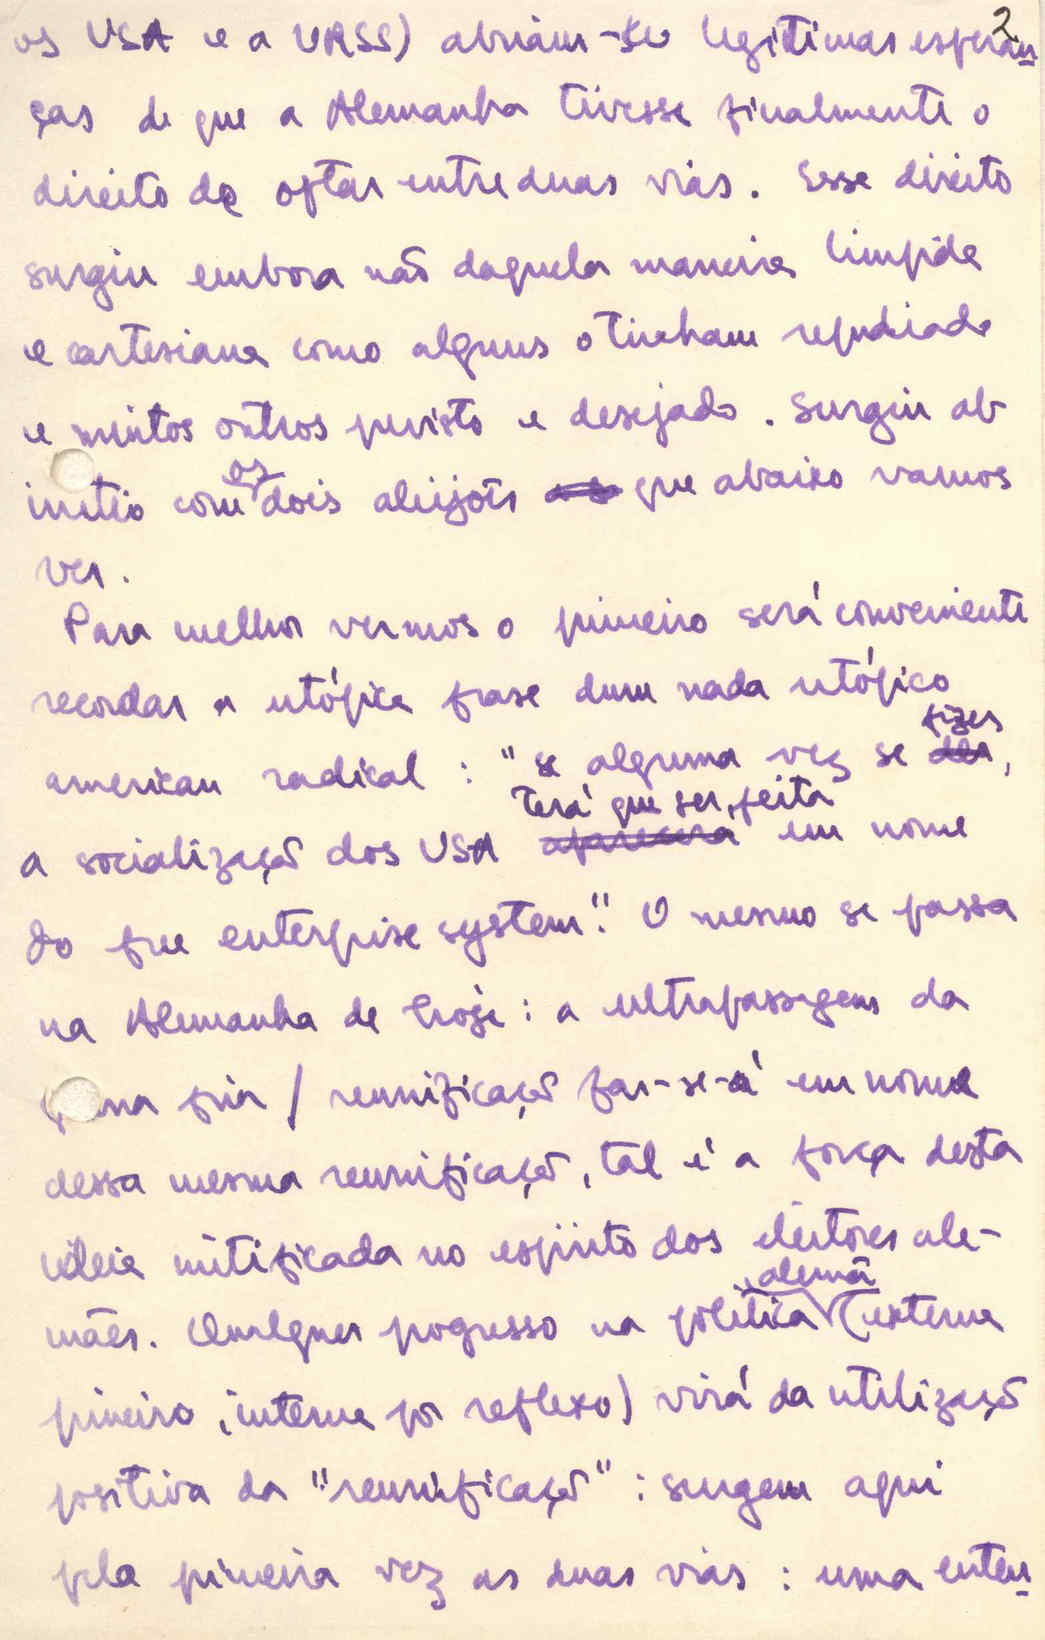 2
os USA e a URSS) abriam-se legitimas esperan
ças de que a Alemanha tivesse finalmente o
direito de optar entre duas vias. Esse direito
surgiu embora não daquela maneira limpida
e cartesiana como alguns o tinham repudiado
e muitos outros previsto e desejado. Surgiu ab
initio com os dois aleijões que abaixo vamos
ver.
Para melhor vermos o primeiro será conveniente
recordar a utópica frase dum nada utópico
american radical : "se alguma vez se fizer,
a socialização dos USA terá que ser feita em nome
do free enterprise system". O mesmo se passa
na Alemanha de hoje : a ultrapassagem da
guerra fria / reunificação far-se-á em nome
dessa mesma reunificação, tal é a força desta
ideia mitificada no espirito dos eleitores ale-
mães. Qualquer progresso na politica alemã (externa
primeiro, interna por reflexo) virá da utilização
positiva da "reunificação" : surgem aqui
pela primeira vez as duas vias : uma enten